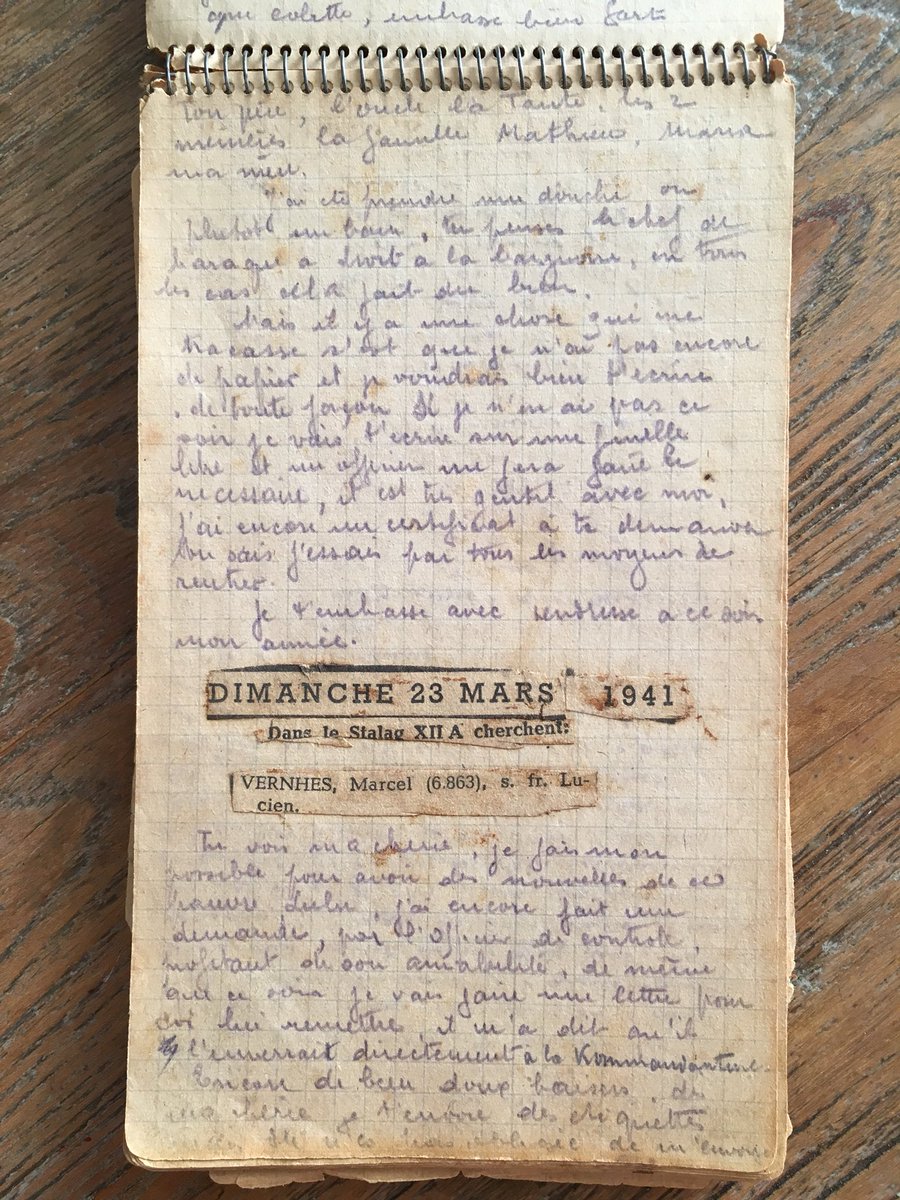 que colette, embrasse bien fort
ton père, l'oncle la Tante, les 2
la famille Mathieu, Mama
ma mère.
J'ai été prendre une douche ou
plutot un bain, tu penses le chef de
baraque a droit à la baignoire, en tous
les cas cella fait du bien.
Mais il y a une chose qui me
tracasse s'est que je n'ai pas encore
de papier et je voudrais bien t'ecrire
, de toute façon si je n'en ai pas ce
soir je vais t'ecrire sur une feuille
libre et un officier me fera faire le
necessaire, il est tres gentil avec moi,
J'ai encore un certificat à te demander
tu sais j'essais par tous les moyens de
rentrer.
Je t'embrasse avec tendresse a ce soir
mon aimée.
DIMANCHE 23 MARS 1941
Dans le Stalag XII A cherchent:
VERNHES, Marcel (6.863), s. fr. Lu-
cien.
Tu vois ma cherie, je fais mon
possible pour avoir des nouvelles de ce
pauvre Lulu, j'ai encore fait une
demande, par l'Officier de controle,
profitant de son amabilité, de même
que ce soir je vais faire une lettre pour
toi lui remettre, il m'a dit qu'il
l'enverrait directement à la Kommandanture
Encore de bien doux baisers, de
ma cherie je t'envoie des etiquettes
pas obligée de m'envoyer